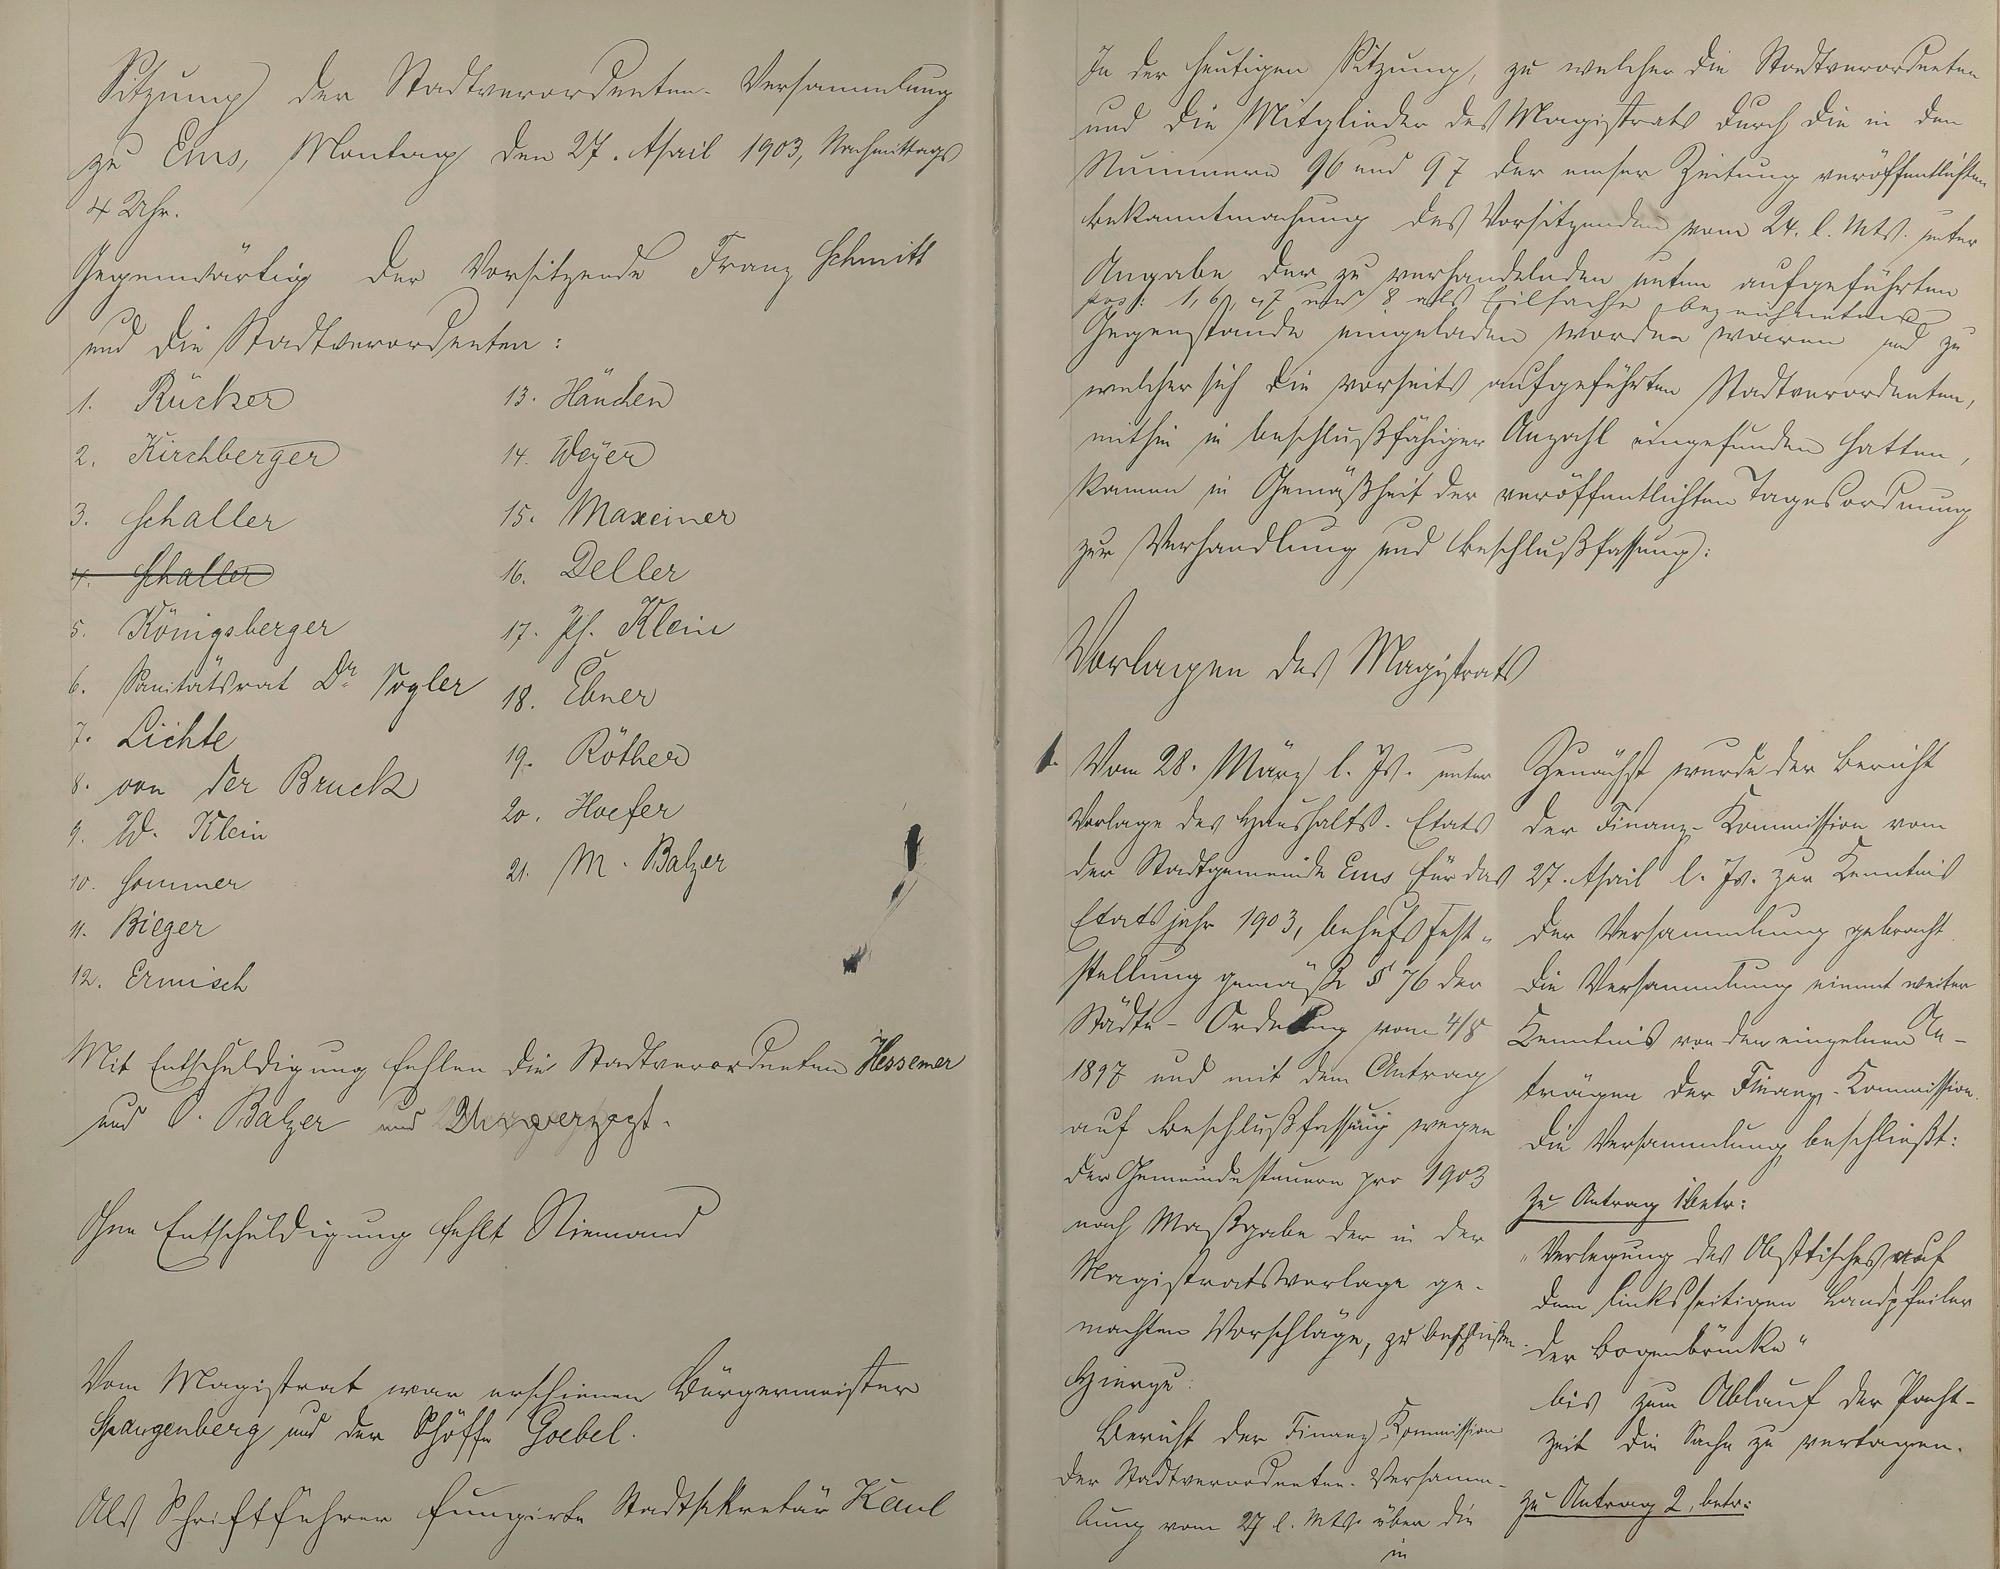 Sitzung der Stadtverordneten-Versammlung
zu Ems, Montag den 27. April 1903, Nachmittags
4 Uhr.
Gegenwärtig der Vorsitzende Franz Schmitt
und die Stadtverordneten:
1. Rücker
2. Kirchberger
3. Schaller
4. Schaller
5. Königsberger
6. Sanitätsrat Dr. Vogler
7. Lichte
8. von der Bruck
9. W. Klein
10. Sommer
11. Bieger
12. Ermisch
13. Hänchen
14. Weyer
15. Maxeiner
16. Deller
17. Ph. Klein
18. Ebner
19. Röther
20. Hoefer
21. M. Balzer
Mit Entschuldigung fehlen die Stadtverordneten Hessemer
und O. Balzer und Unverzagt.
Ohne Entschuldigung fehlt Niemand
Vom Magistrat war erschienen Bürgermeister
Spangenberg und der Schöffe Goebel.
Als Schriftführer fungirte Stadtsekretär Kaul
In der heutigen Sitzung, zu welcher die Stadtverordneten
und die Mitglieder des Magistrats durch die in den
Nummern 96 und 97 der emser Zeitung veröffentlichten
Bekanntmachung des Vorsitzenden vom 24. l. Mts. unter
Angabe der zu verhandelnden unten aufgeführten
pos: 1, 6, 7 und 8 als Eilsache bezeichneten
Gegenstände eingeladen worden waren und zu
welcher sich die vorseits aufgeführten Stadtverordneten,
mithin in beschlußfähiger Anzahl eingefunden hatten,
kamen in Gemäßheit der veröffentlichten Tagesordnung
zur Verhandlung und Beschlußfassung:
Vorlagen des Magistrats
1. Vom 28. März l. Js. unter
Vorlage des Haushalts-Etats
der Stadtgemeinde Ems für das
Etatsjahr 1903, behufs Fest-
stellung gemäß § 76 der
Städte-Ordnung vom 4/8
1897 und mit dem Antrag
auf Beschlußfassung wegen
der Gemeindesteuern pro 1903
nach Maßgabe der in der
Magistratsvorlage ge-
machten Vorschläge, zu beschließen.
Hierzu:
Bericht der Finanz-Kommission
der Stadtverordneten-Versamm-
lung vom 27 l. Mts. über die
in
Zunächst wurde der Bericht
der Finanz-Kommission vom
27. April l. Js. zur Kenntnis
der Versammlung gebracht.
Die Versammlung nimmt weiter
Kenntnis von den einzelnen An-
trägen der Finanz-Kommission.
Die Versammlung beschließt:
Zu Antrag 1 betr:
"Verlegung des Obsttisches auf
dem linksseitigen Landpfeiler
der Bogenbrücke"
bis zum Ablauf der Pacht-
zeit die Sache zu vertagen.
Zu Antrag 2, betr: